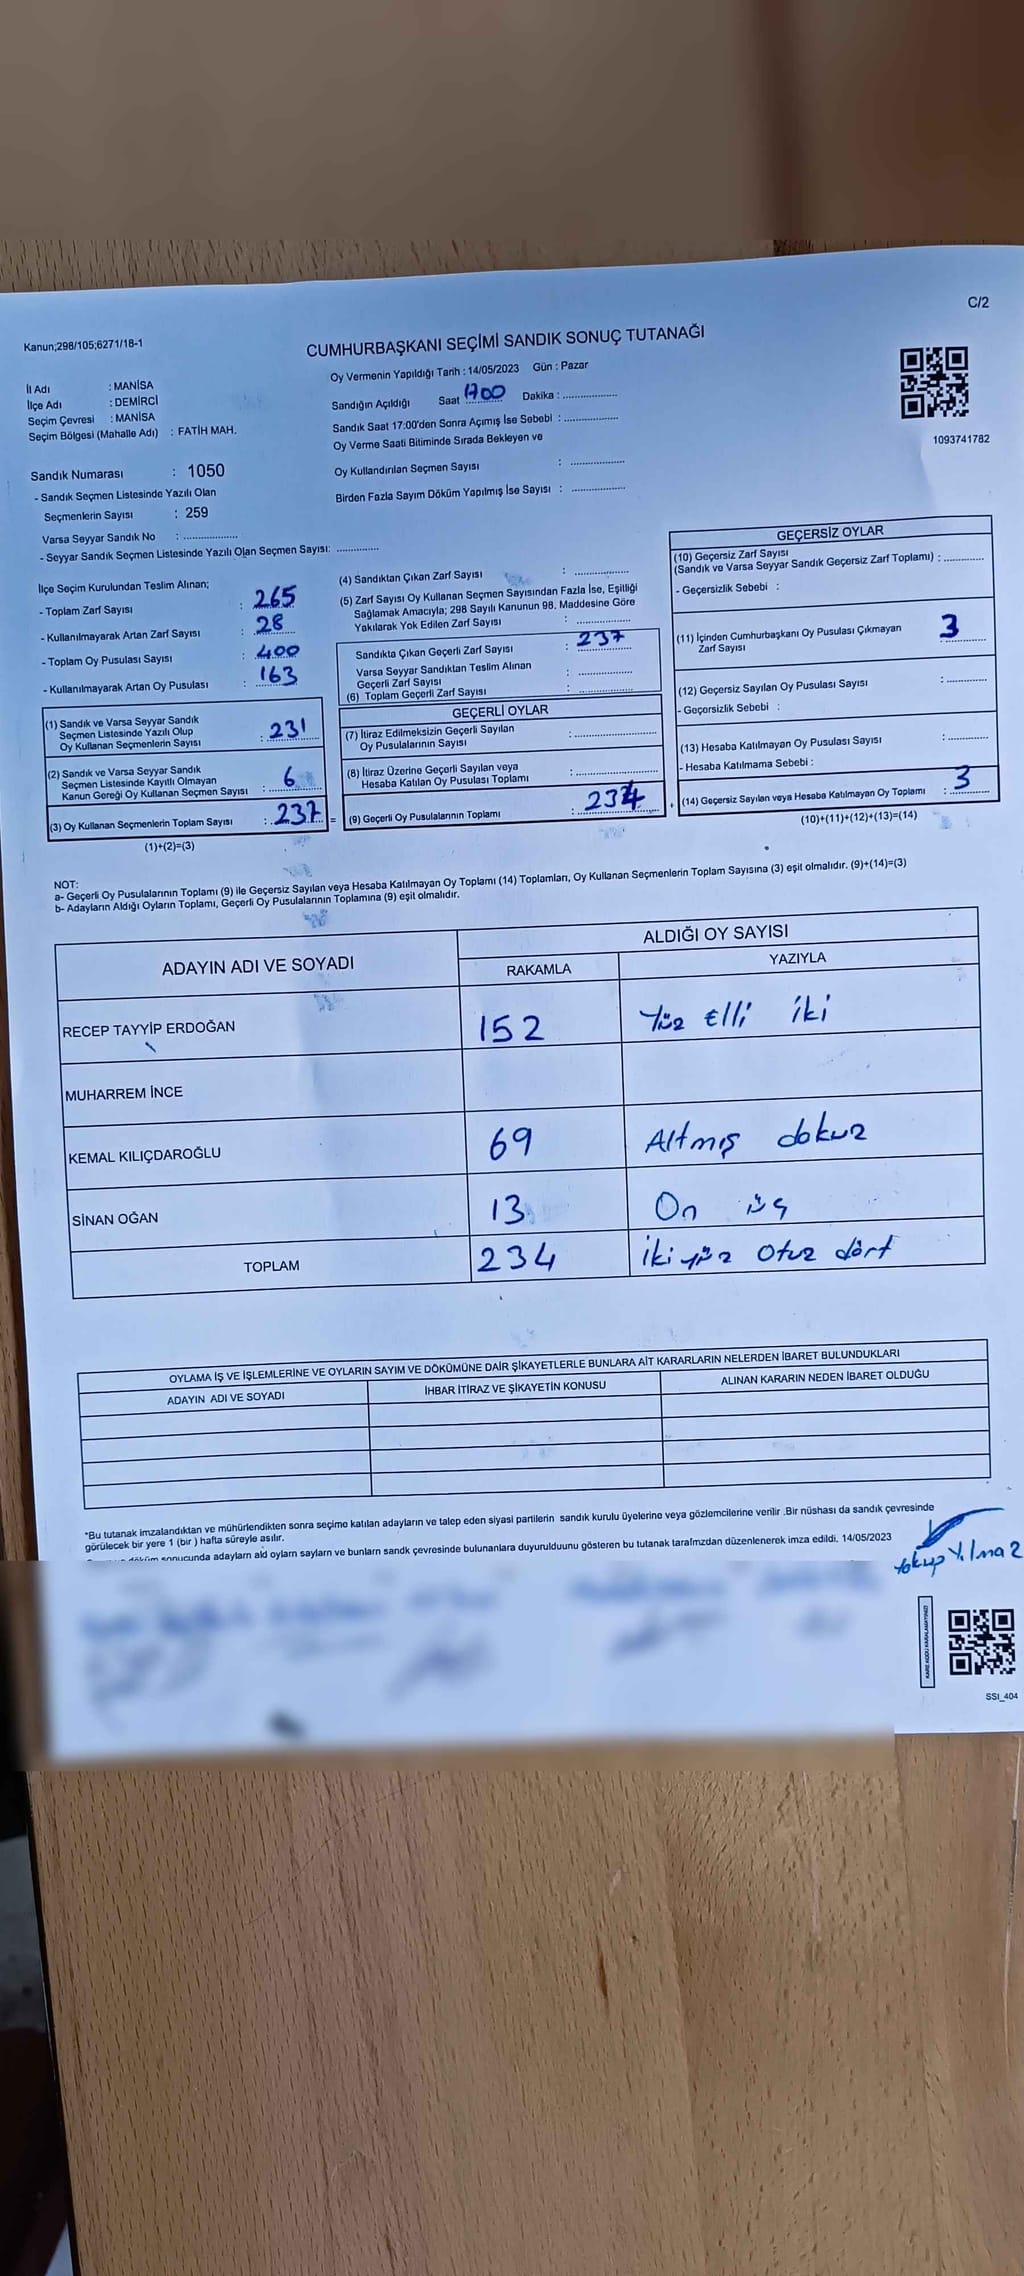 C/2
Kanun;298/105;6271/18-1
CUMHURBAŞKANI SEÇİMİ SANDIK SONUÇ TUTANAĞI
İl Adı : MANİSA
İlçe Adı : DEMİRCİ
Seçim Çevresi : MANİSA
Seçim Bölgesi (Mahalle Adı) : FATİH MAH.
Oy Vermenin Yapıldığı Tarih : 14/05/2023 Gün : Pazar
Sandığın Açıldığı Saat 1700 Dakika : ................
Sandık Saat 17:00'den Sonra Açımış İse Sebebi : ................
Oy Verme Saati Bitiminde Sırada Bekleyen ve
Oy Kullandırılan Seçmen Sayısı : ................
Birden Fazla Sayım Döküm Yapılmış İse Sayısı : ................
1093741782
Sandık Numarası : 1050
- Sandık Seçmen Listesinde Yazılı Olan
Seçmenlerin Sayısı : 259
Varsa Seyyar Sandık No : ................
- Seyyar Sandık Seçmen Listesinde Yazılı Olan Seçmen Sayısı: ............
İlçe Seçim Kurulundan Teslim Alınan;
- Toplam Zarf Sayısı : 265
- Kullanılmayarak Artan Zarf Sayısı : 28
- Toplam Oy Pusulası Sayısı : 400
- Kullanılmayarak Artan Oy Pusulası : 163
(1) Sandık ve Varsa Seyyar Sandık
Seçmen Listesinde Yazılı Olup
Oy Kullanan Seçmenlerin Sayısı : 231
(2) Sandık ve Varsa Seyyar Sandık
Seçmen Listesinde Kayıtlı Olmayan
Kanun Gereği Oy Kullanan Seçmen Sayısı : 6
(3) Oy Kullanan Seçmenlerin Toplam Sayısı : 237 =
(1)+(2)=(3)
(4) Sandıktan Çıkan Zarf Sayısı : ................
(5) Zarf Sayısı Oy Kullanan Seçmen Sayısından Fazla İse, Eşitliği
Sağlamak Amacıyla; 298 Sayılı Kanunun 98. Maddesine Göre
Yakılarak Yok Edilen Zarf Sayısı : ................
Sandıkta Çıkan Geçerli Zarf Sayısı : 237
Varsa Seyyar Sandıktan Teslim Alınan
Geçerli Zarf Sayısı : ................
(6) Toplam Geçerli Zarf Sayısı : ................
GEÇERLİ OYLAR
(7) İtiraz Edilmeksizin Geçerli Sayılan
Oy Pusulalarının Sayısı : ................
(8) İtiraz Üzerine Geçerli Sayılan veya
Hesaba Katılan Oy Pusulası Toplamı : ................
(9) Geçerli Oy Pusulalarının Toplamı : 234 +
GEÇERSİZ OYLAR
(10) Geçersiz Zarf Sayısı
(Sandık ve Varsa Seyyar Sandık Geçersiz Zarf Toplamı) : ............
- Geçersizlik Sebebi :
(11) İçinden Cumhurbaşkanı Oy Pusulası Çıkmayan
Zarf Sayısı : 3
(12) Geçersiz Sayılan Oy Pusulası Sayısı : ............
- Geçersizlik Sebebi :
(13) Hesaba Katılmayan Oy Pusulası Sayısı : ............
- Hesaba Katılmama Sebebi :
(14) Geçersiz Sayılan veya Hesaba Katılmayan Oy Toplamı : 3
(10)+(11)+(12)+(13)=(14)
NOT:
a- Geçerli Oy Pusulalarının Toplamı (9) ile Geçersiz Sayılan veya Hesaba Katılmayan Oy Toplamı (14) Toplamları, Oy Kullanan Seçmenlerin Toplam Sayısına (3) eşit olmalıdır. (9)+(14)=(3)
b- Adayların Aldığı Oyların Toplamı, Geçerli Oy Pusulalarının Toplamına (9) eşit olmalıdır.
ADAYIN ADI VE SOYADI
ALDIĞI OY SAYISI
RAKAMLA YAZIYLA
RECEP TAYYİP ERDOĞAN 152 Yüz Elli iki
MUHARREM İNCE
KEMAL KILIÇDAROĞLU 69 Altmış dokuz
SİNAN OĞAN 13 On üç
TOPLAM 234 İki yüz Otuz dört
OYLAMA İŞ VE İŞLEMLERİNE VE OYLARIN SAYIM VE DÖKÜMÜNE DAİR ŞİKAYETLERLE BUNLARA AİT KARARLARIN NELERDEN İBARET BULUNDUKLARI
ADAYIN ADI VE SOYADI İHBAR İTİRAZ VE ŞİKAYETİN KONUSU ALINAN KARARIN NEDEN İBARET OLDUĞU
*Bu tutanak imzalandıktan ve mühürlendikten sonra seçime katılan adayların ve talep eden siyasi partilerin sandık kurulu üyelerine veya gözlemcilerine verilir .Bir nüshası da sandık çevresinde
görülecek bir yere 1 (bir ) hafta süreyle asılır.
sonucunda adayların ald oyların sayların ve bunların sandk çevresinde bulunanlara duyurulduunu gösteren bu tutanak tarafmzdan düzenlenerek imza edildi. 14/05/2023
Yakup Yılmaz
KARE KODU KARALAMAYINIZ!
SSI_404